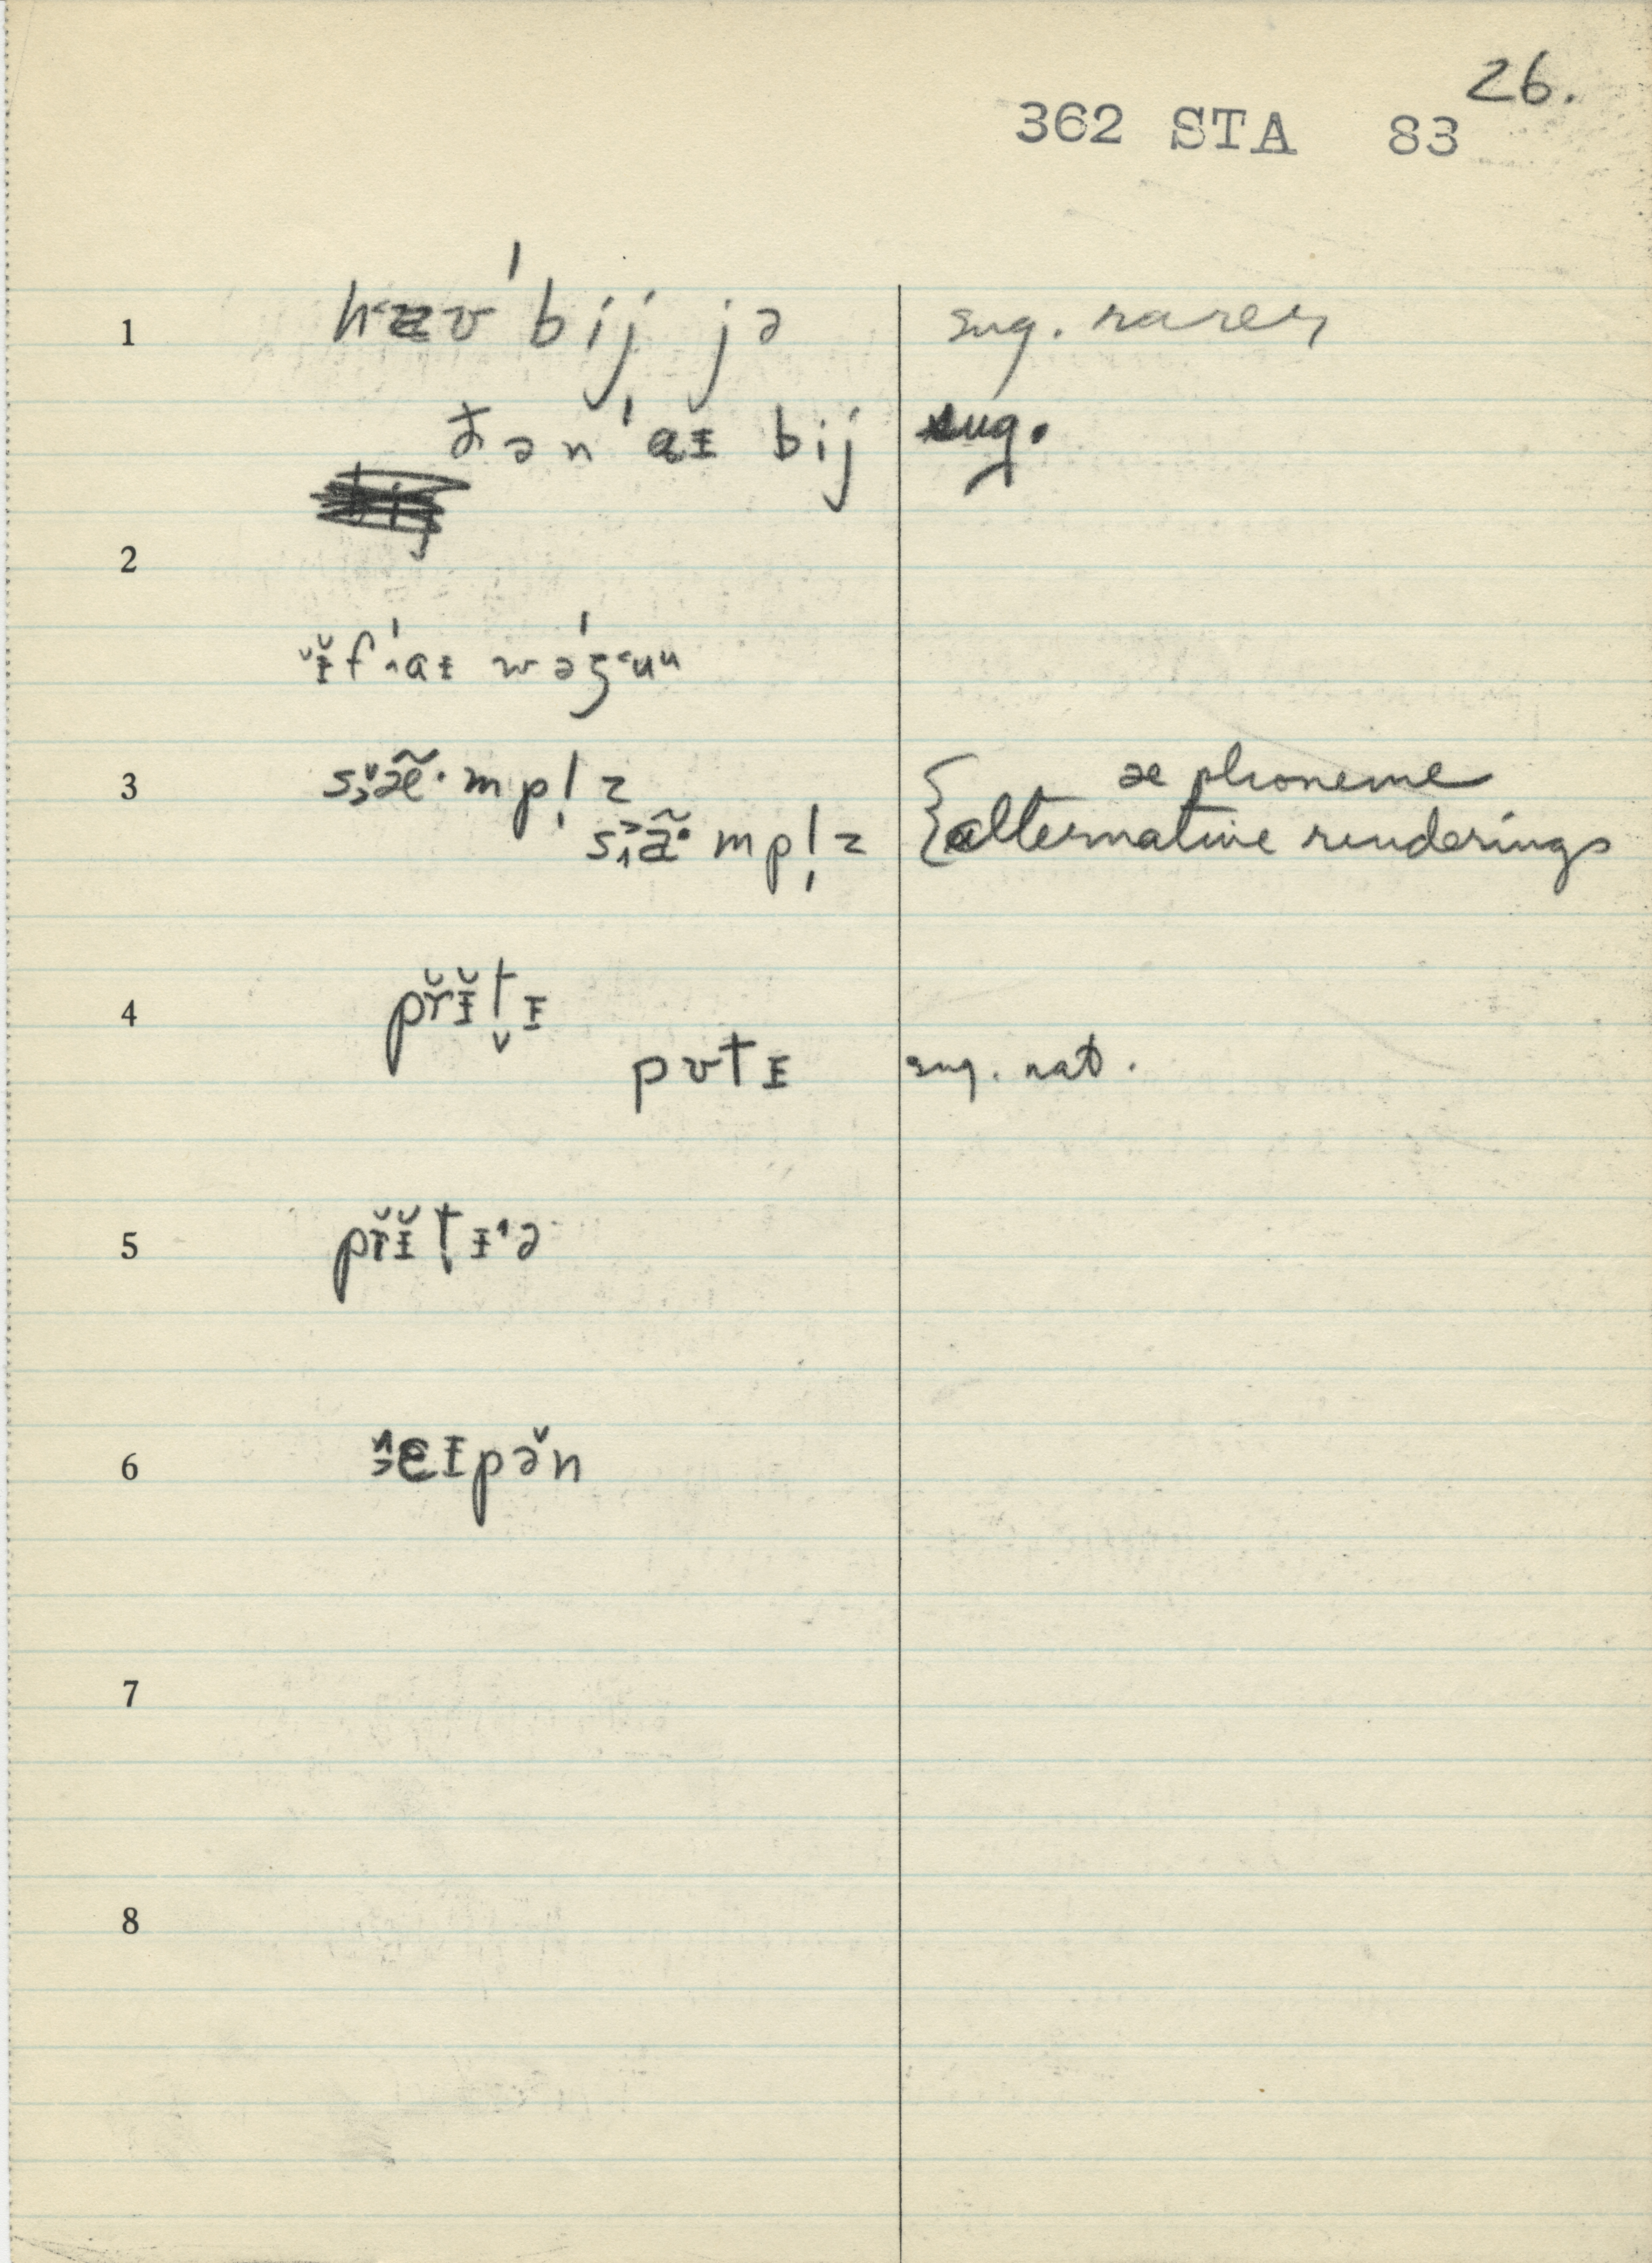 26.
362 STA 83
1 hæʊ ˈbij jə sug. rarer
ðən ˈaɪ bij sug.
2
ɪ̆f ˈaɪ wəz ˈuu
3 sæ̃·mpl̩z { æ phoneme
sã·mpl̩z alternative renderings
4 pr̆ɪ̆t̬ɪ
pʊtɪ sug. nat.
5 pr̆ɪ̆t̬ɪˈə
6 eɪpə̆n
7
8